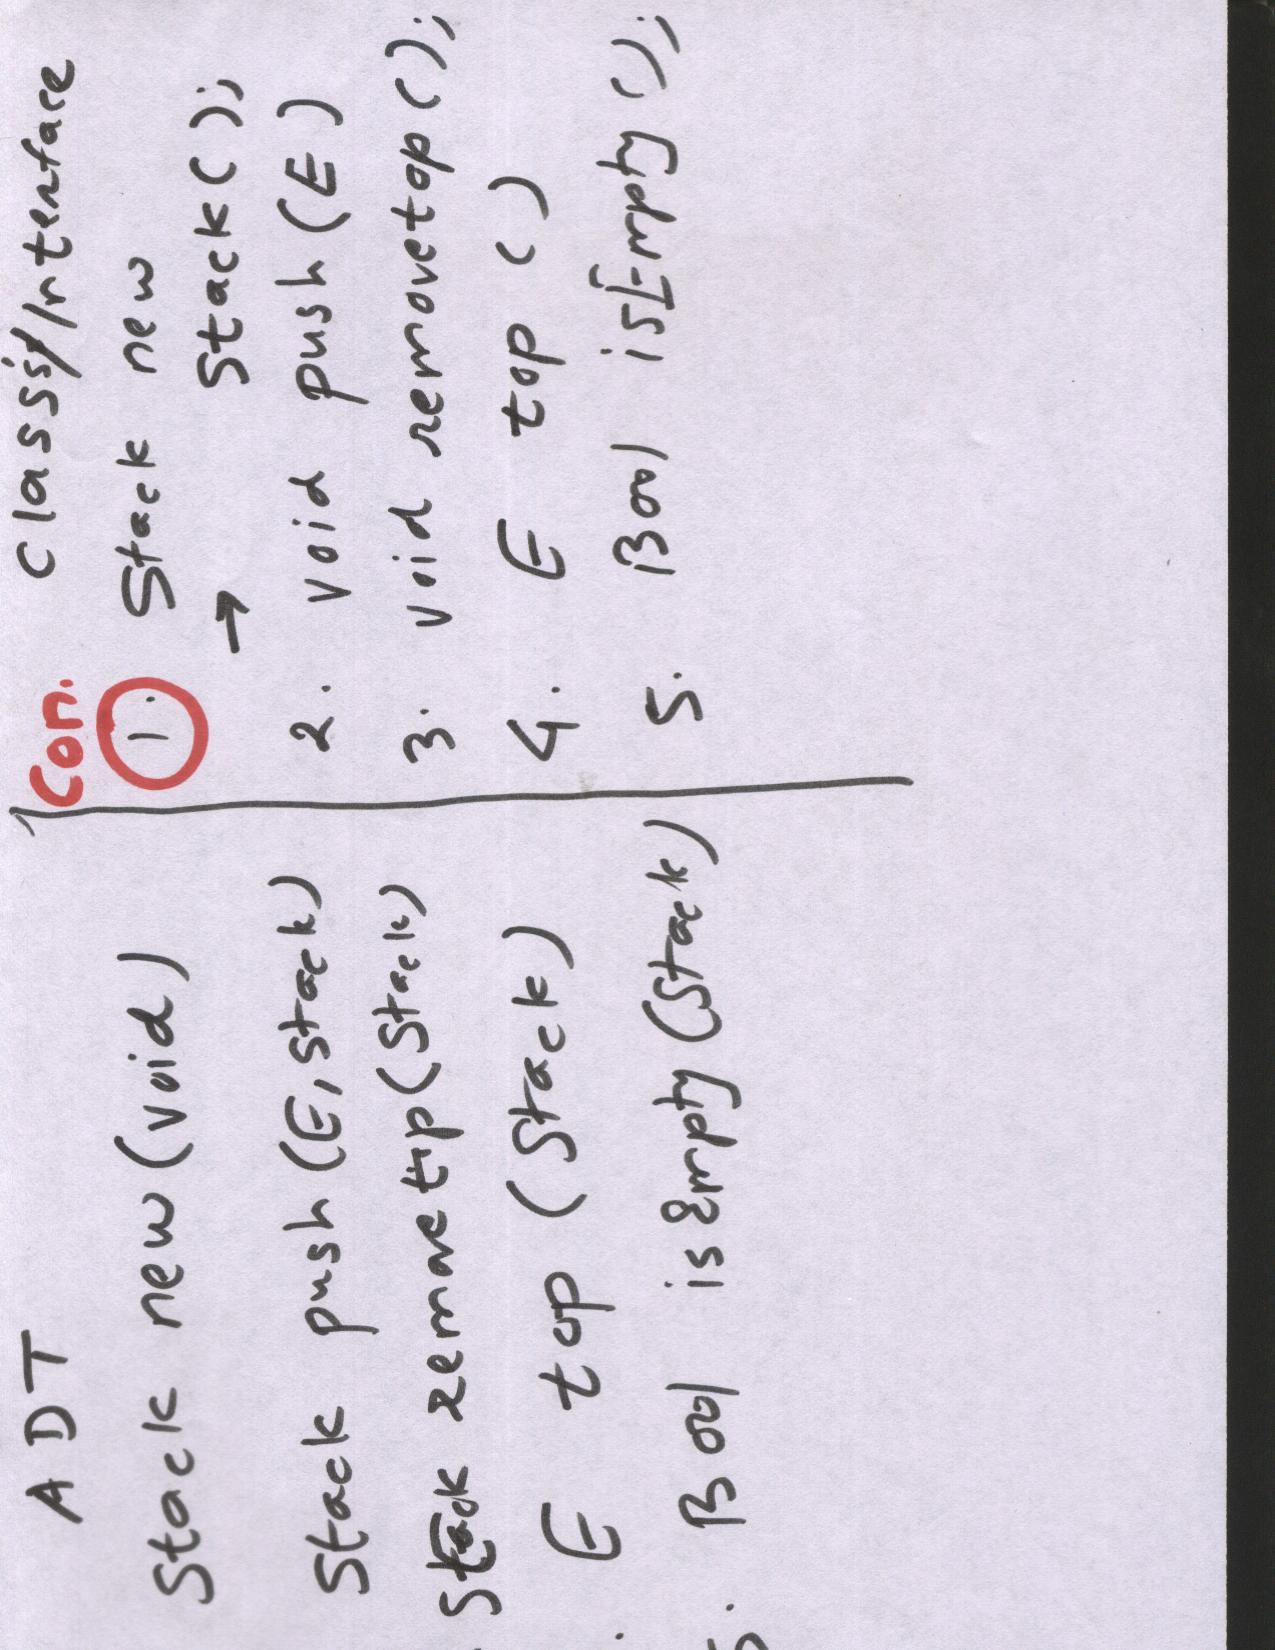 ADT
Stack new (void)
Stack push (E, Stack)
Stack removetop (Stack)
E top (Stack)
5. Bool isEmpty (Stack)
Con. Class/Interface
1. Stack new
→ Stack();
2. void push (E)
3. void removetop();
4. E top ()
5. Bool isEmpty ();